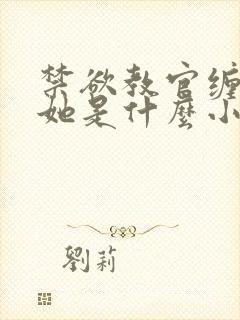 禁欲教官缠
她是什麼小
劉莉